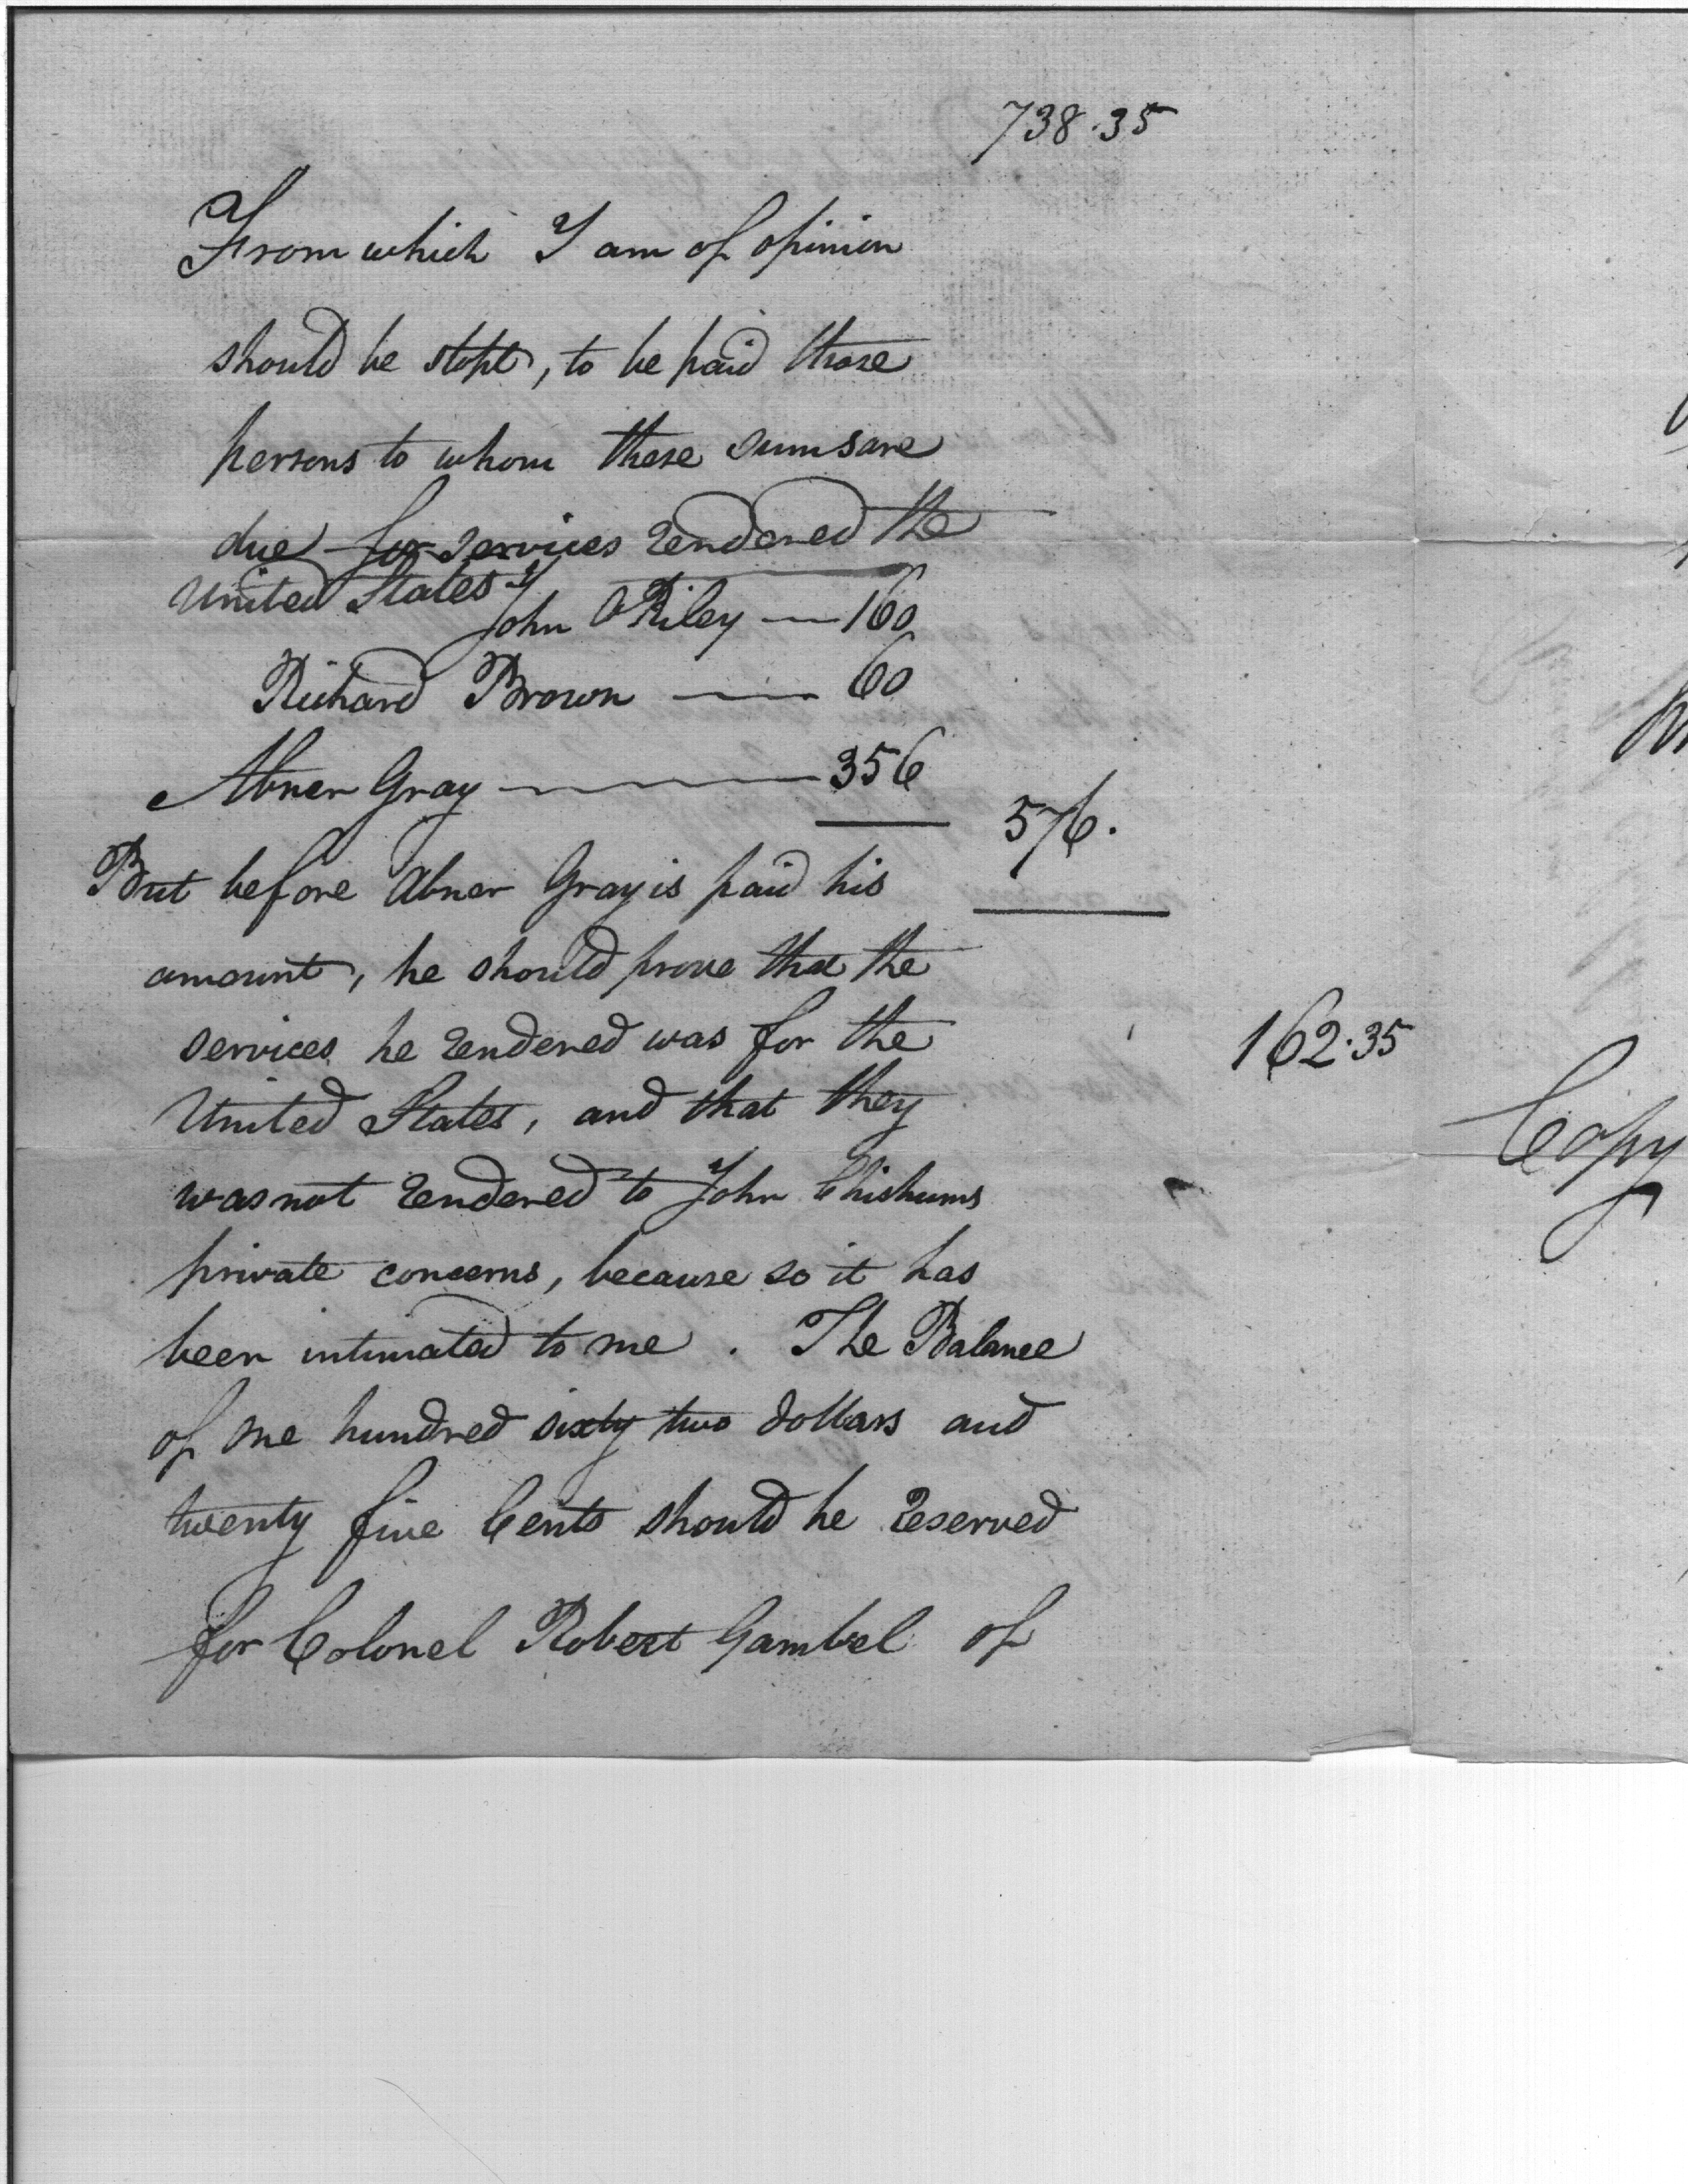 738.35
From which I am of opinion
should be stopt, to be paid those
persons to whom these sums are
due for services rendered the
United States
John ORiley — 160
Richard Brown — 60
Abner Gray — 356
576.
But before Abner Gray is paid his
amount, he should prove that the
services he rendered was for the
162.35
United States, and that they
Copy
was not rendered to John Chishums
private concerns, because so it has
been intimated to me. The Balance
of one hundred sixty two dollars and
twenty five Cents should be reserved
for Colonel Robert Gambel of